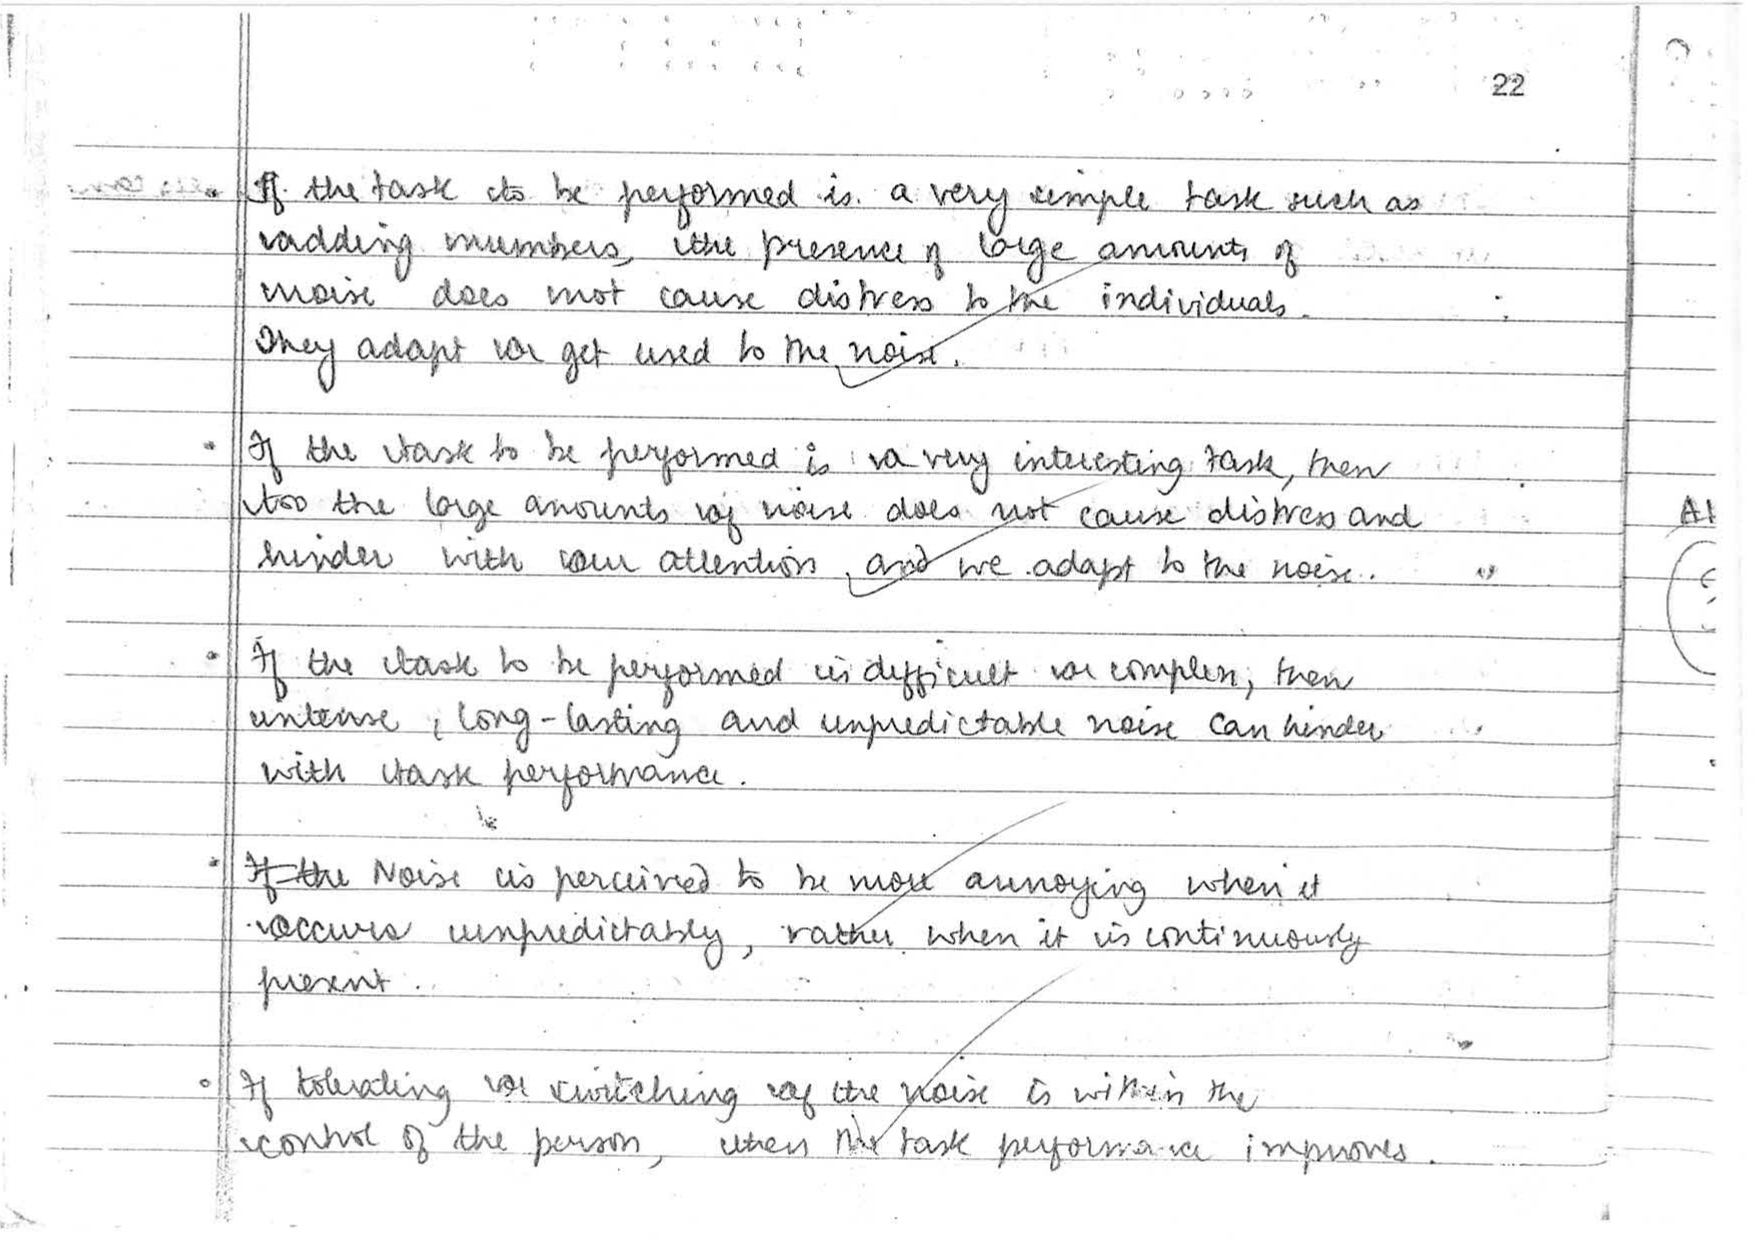 22
• If the task to be performed is a very simple task such as
adding numbers, the presence of large amounts of
noise does not cause distress to the individuals.
They adapt or get used to the noise.
• If the task to be performed is a very interesting task, then
too the large amounts of noise does not cause distress and
hinder with our attention and we adapt to the noise.
• If the task to be performed is difficult or complex, then
intense, long-lasting and unpredictable noise can hinder
with task performance.
• If the Noise is perceived to be more annoying when it
occurs unpredictably, rather when it is continuously
present.
• If tolerating or switching of the noise is within the
control of the person, then the task performance improves.